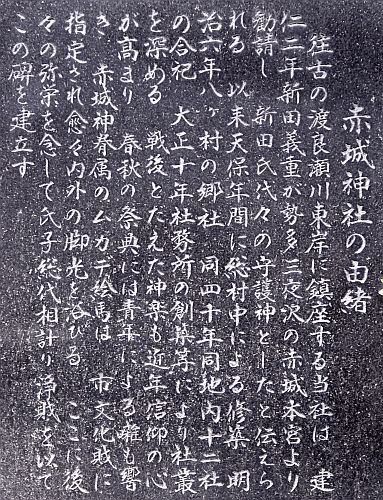 赤城神社の由緒
往古の渡良瀬川東岸に鎮座する当社は 建
仁二年新田義重が勢多三夜沢の赤城本宮より
勧請し 新田氏代々の守護神としたと伝えら
れる 以来天保年間に総村中による修築 明
治六年八ヶ村の郷社 同四十年同地内十二社
の合祀 大正十年社務所の創築等により社叢
を深める 戦後とだえた神楽も近年信仰の心
が高まり 春秋の祭典には青年による雛も響
き 赤城神眷属のムカデ絵馬は 市文化財に
指定され愈々内外の脚光を浴びる ここに後
々の弥栄を念して氏子総代相計り浄財を以て
この碑を建立す